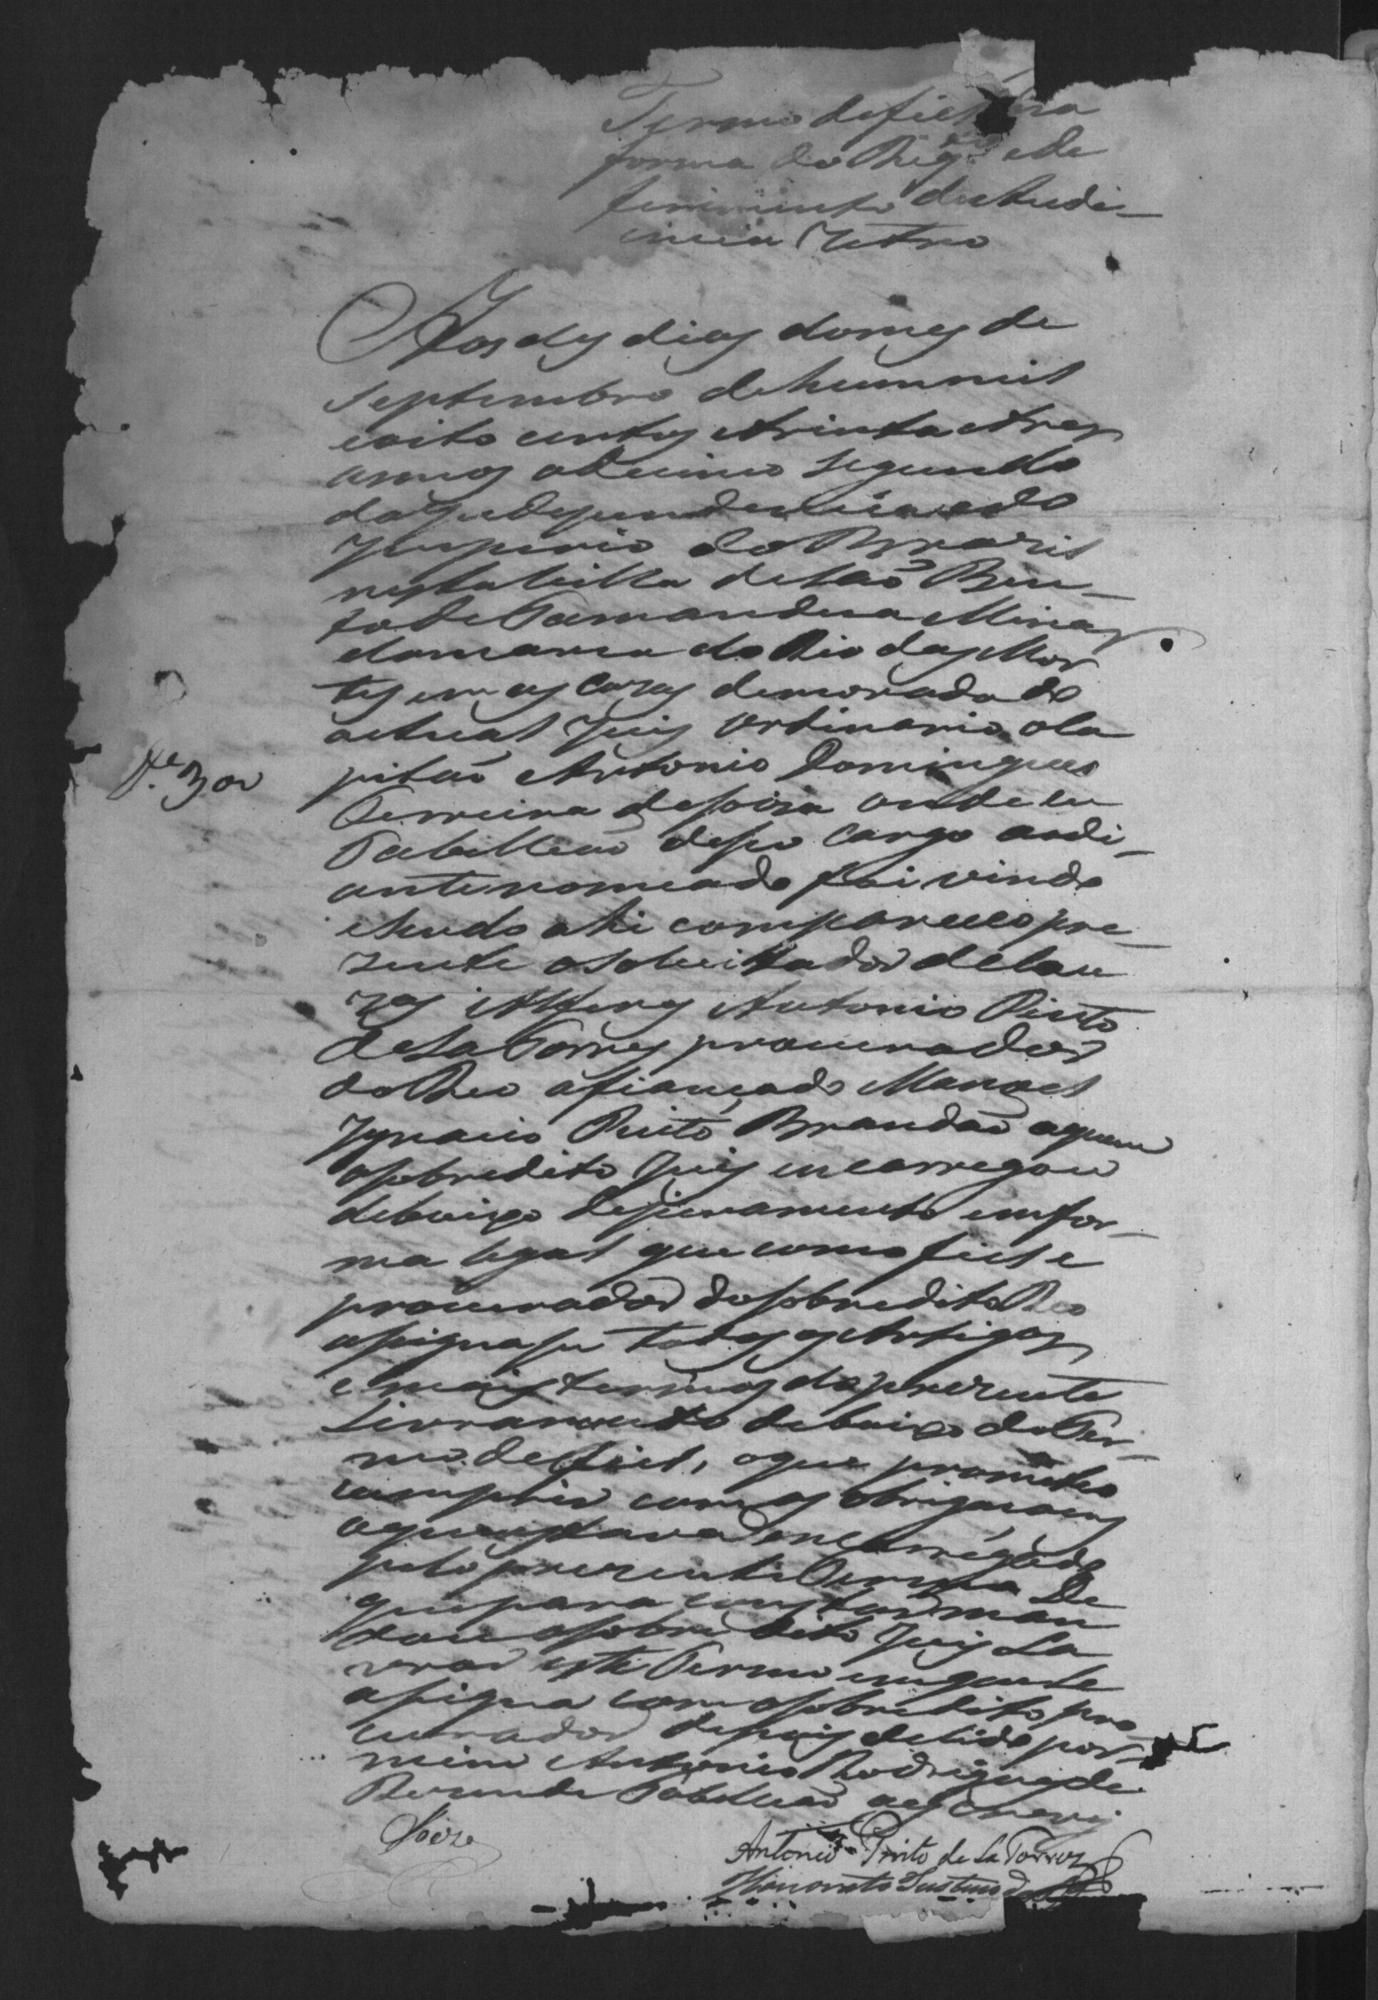 Termo de fiel na
forma do Reqr.to e de
ferimento de Audi-
encia retro
Aos dez dias do mez de
Septembro de hum mil
e oito centos e trinta e tres
annos decimo segundo
da Independencia e do
Imperio do Brazil
nesta Villa de Saõ Ben-
to de Tamandua Minas
Comarca do Rio das Mor
tes em as cazas de morada do
actual Juis Ordinario o Ca
pitaõ Antonio Domingues
Ferreira de Soiza onde eu
Tabelliaõ de seo cargo a o di-
ante nomeado fui vindo
e hendo ahi compareceo pre-
zente o solicitador de Cau
zas Alferes Antonio Pinto
de La Torres procurador
do Reo afiançado Manoel
Ignacio Pinto Brandaõ a quem
o sobredito Juis encarregou
debaixo de juramento em for-
ma legal que como fiel e
procurador do sobredito Reo
asignase todos os Artigos
e mais termos do prezente
Livramento debaixo do Ter-
mo de fiel, o que prometeo
cumprir com as obrigacoens
a que estava encarregado
pelo prezente Termo De
que para constar man
dou o sobredito Juis La
vrar este Termo em que se
asigna com o sobredito pro
curador depois de lido por
mim Antonio Rodrigues de
Tabelliaõ o escrevi
Soiza
Antonio Pinto de La Torres
Honorato Justino